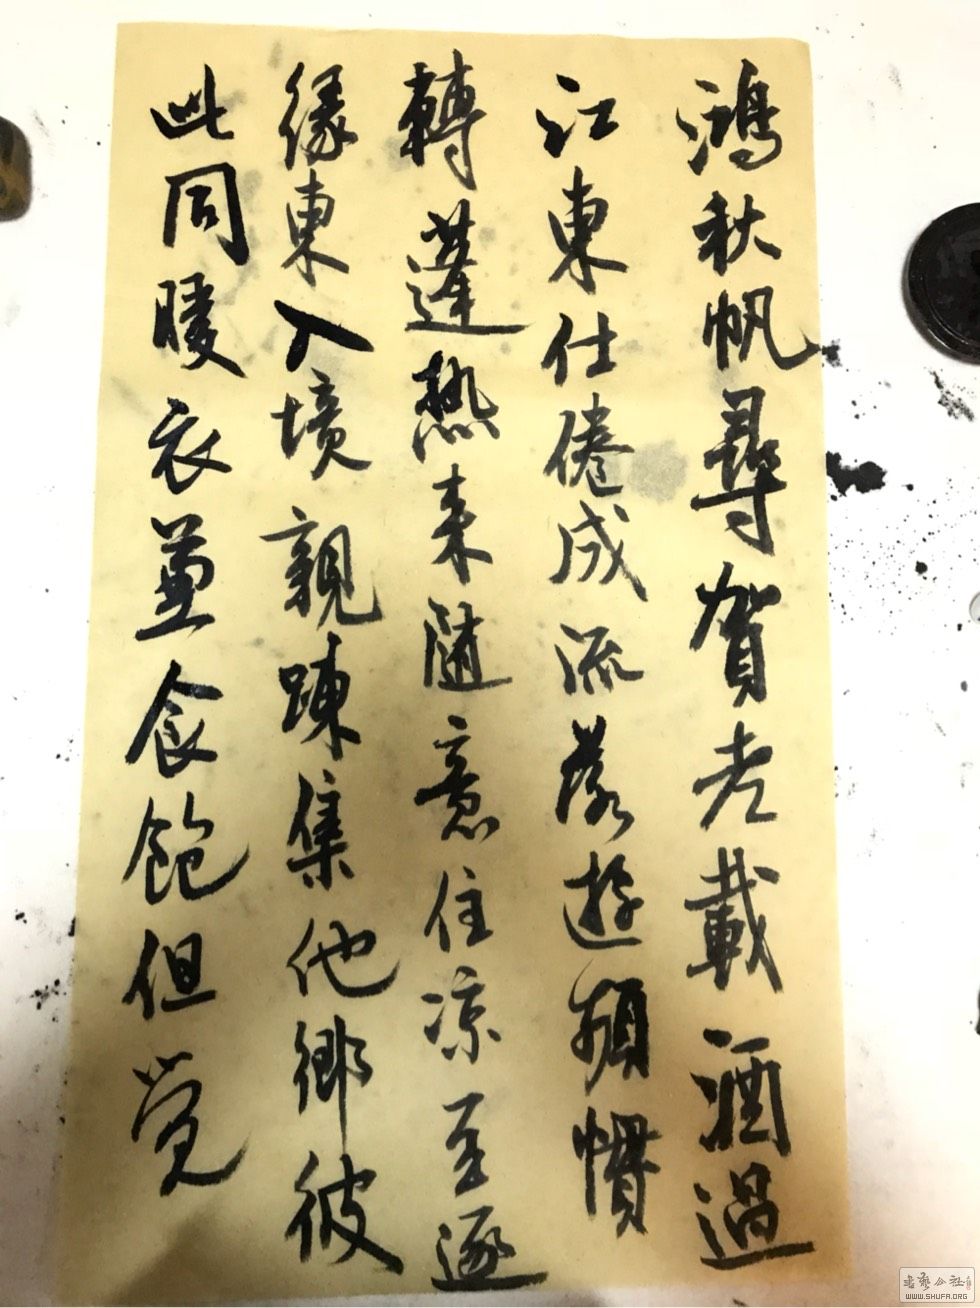 鴻秋帆尋賀老載酒過
江東仕倦成流落遊頻慣
轉蓬熱来隨意住凉至逐
緣東入境親踈集他鄉彼
此同暖衣兼食飽但覺
書藝公社
WWW.SHUFA.ORG